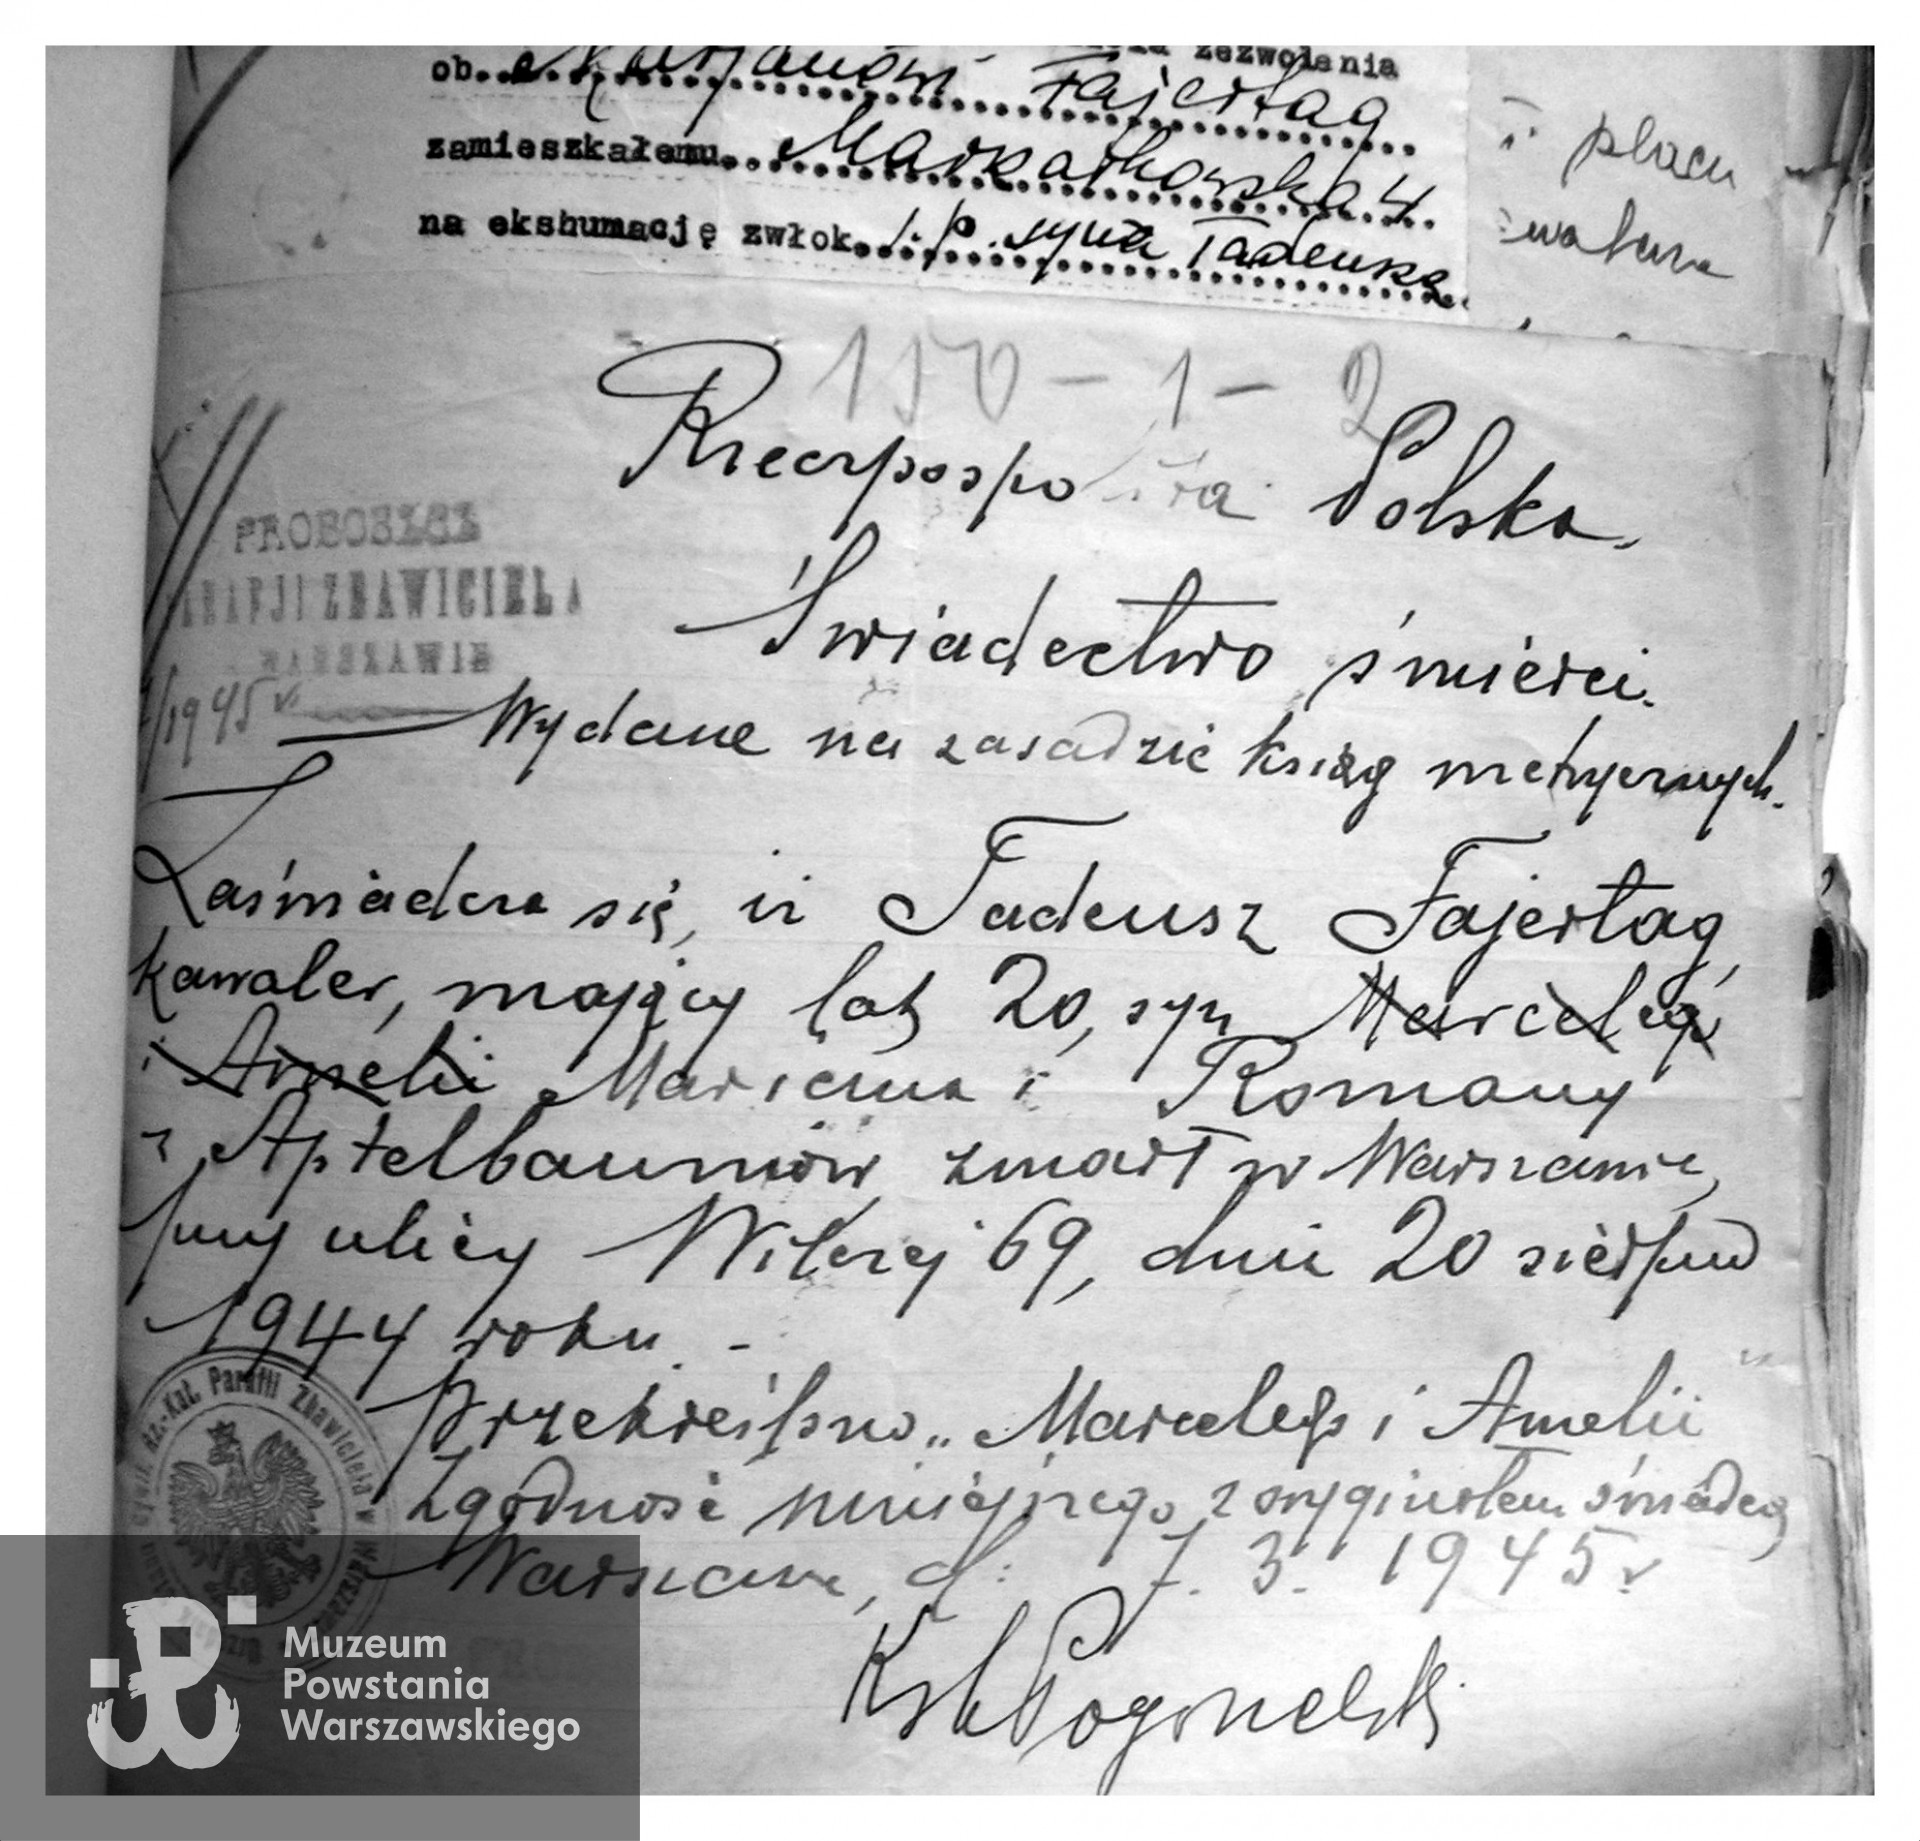 zezwolenia
ob. Marjanowi Fajertag
zamieszkałemu Markarkowska 4
na ekshumację zwłok ś.p. syna Tadeusza
i placu
150 - 1 - 2
Rzeczpospolita Polska.
PROBOSZCZ
PARAFJI ZBAWICIELA
WARSZAWIE
/1945 r.
Świadectwo śmierci.
Wydane na zasadzie ksiąg metrycznych.
Zaświadcza się, iż Tadeusz Fajertag,
kawaler, mający lat 20, syn Marcelego
i Amelii Mariana i Romany
z Aptelbaumów zmarł w Warszawie,
przy ulicy Wilczej 69, dnia 20 sierpnia
1944 roku. -
Przekreślono „Marcelego i Amelii"
Zgodność niniejszego z oryginałem świadczę
Warszawa, d. 7. 3. 1945 r
Rz.-Kat. Parafii Zbawiciela w Warszawie
Muzeum
Powstania
Warszawskiego